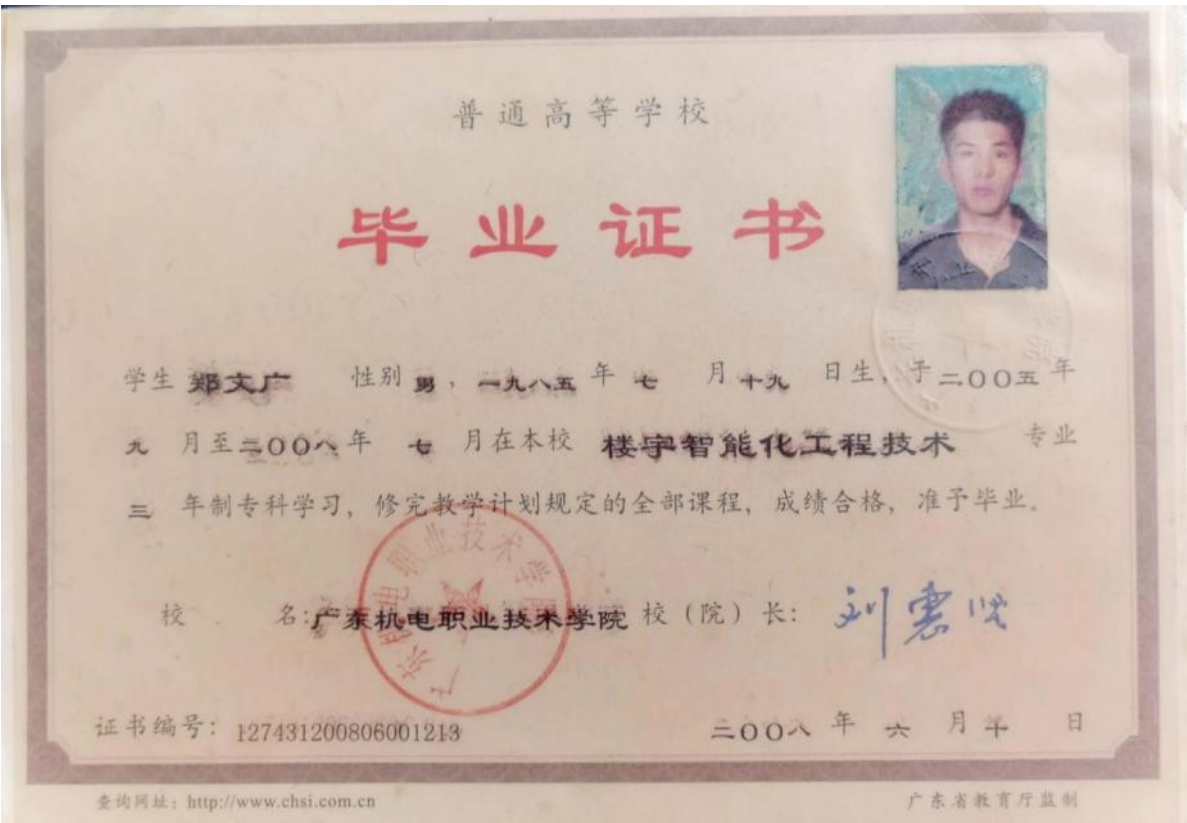 普通高等学校
毕业证书
学生 郑文广 性别 男，一九八五 年 七 月 十九 日生，于二〇〇五 年
九 月至二〇〇八年 七 月在本校 楼宇智能化工程技术 专业
三 年制专科学习，修完教学计划规定的全部课程，成绩合格，准予毕业。
校 名：广东机电职业技术学院 校（院）长：
广东机电职业技术学院
证书编号：127431200806001213 二〇〇八 年 六 月 十 日
查询网址：http://www.chsi.com.cn 广东省教育厅监制